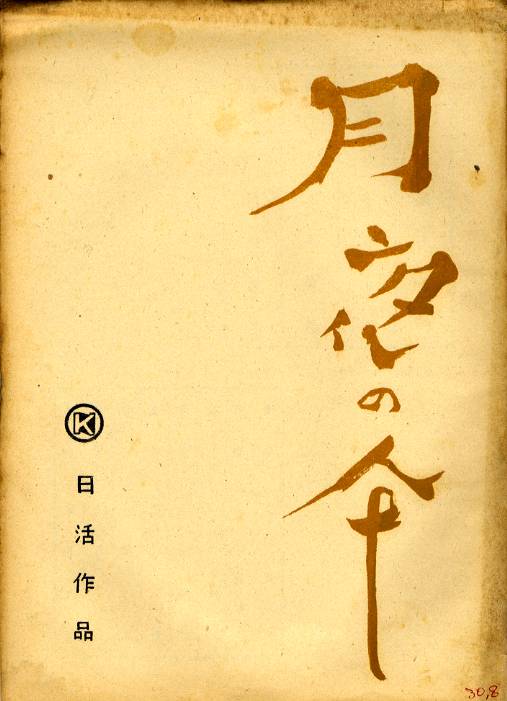 月夜の傘
K
日活作品
30,8